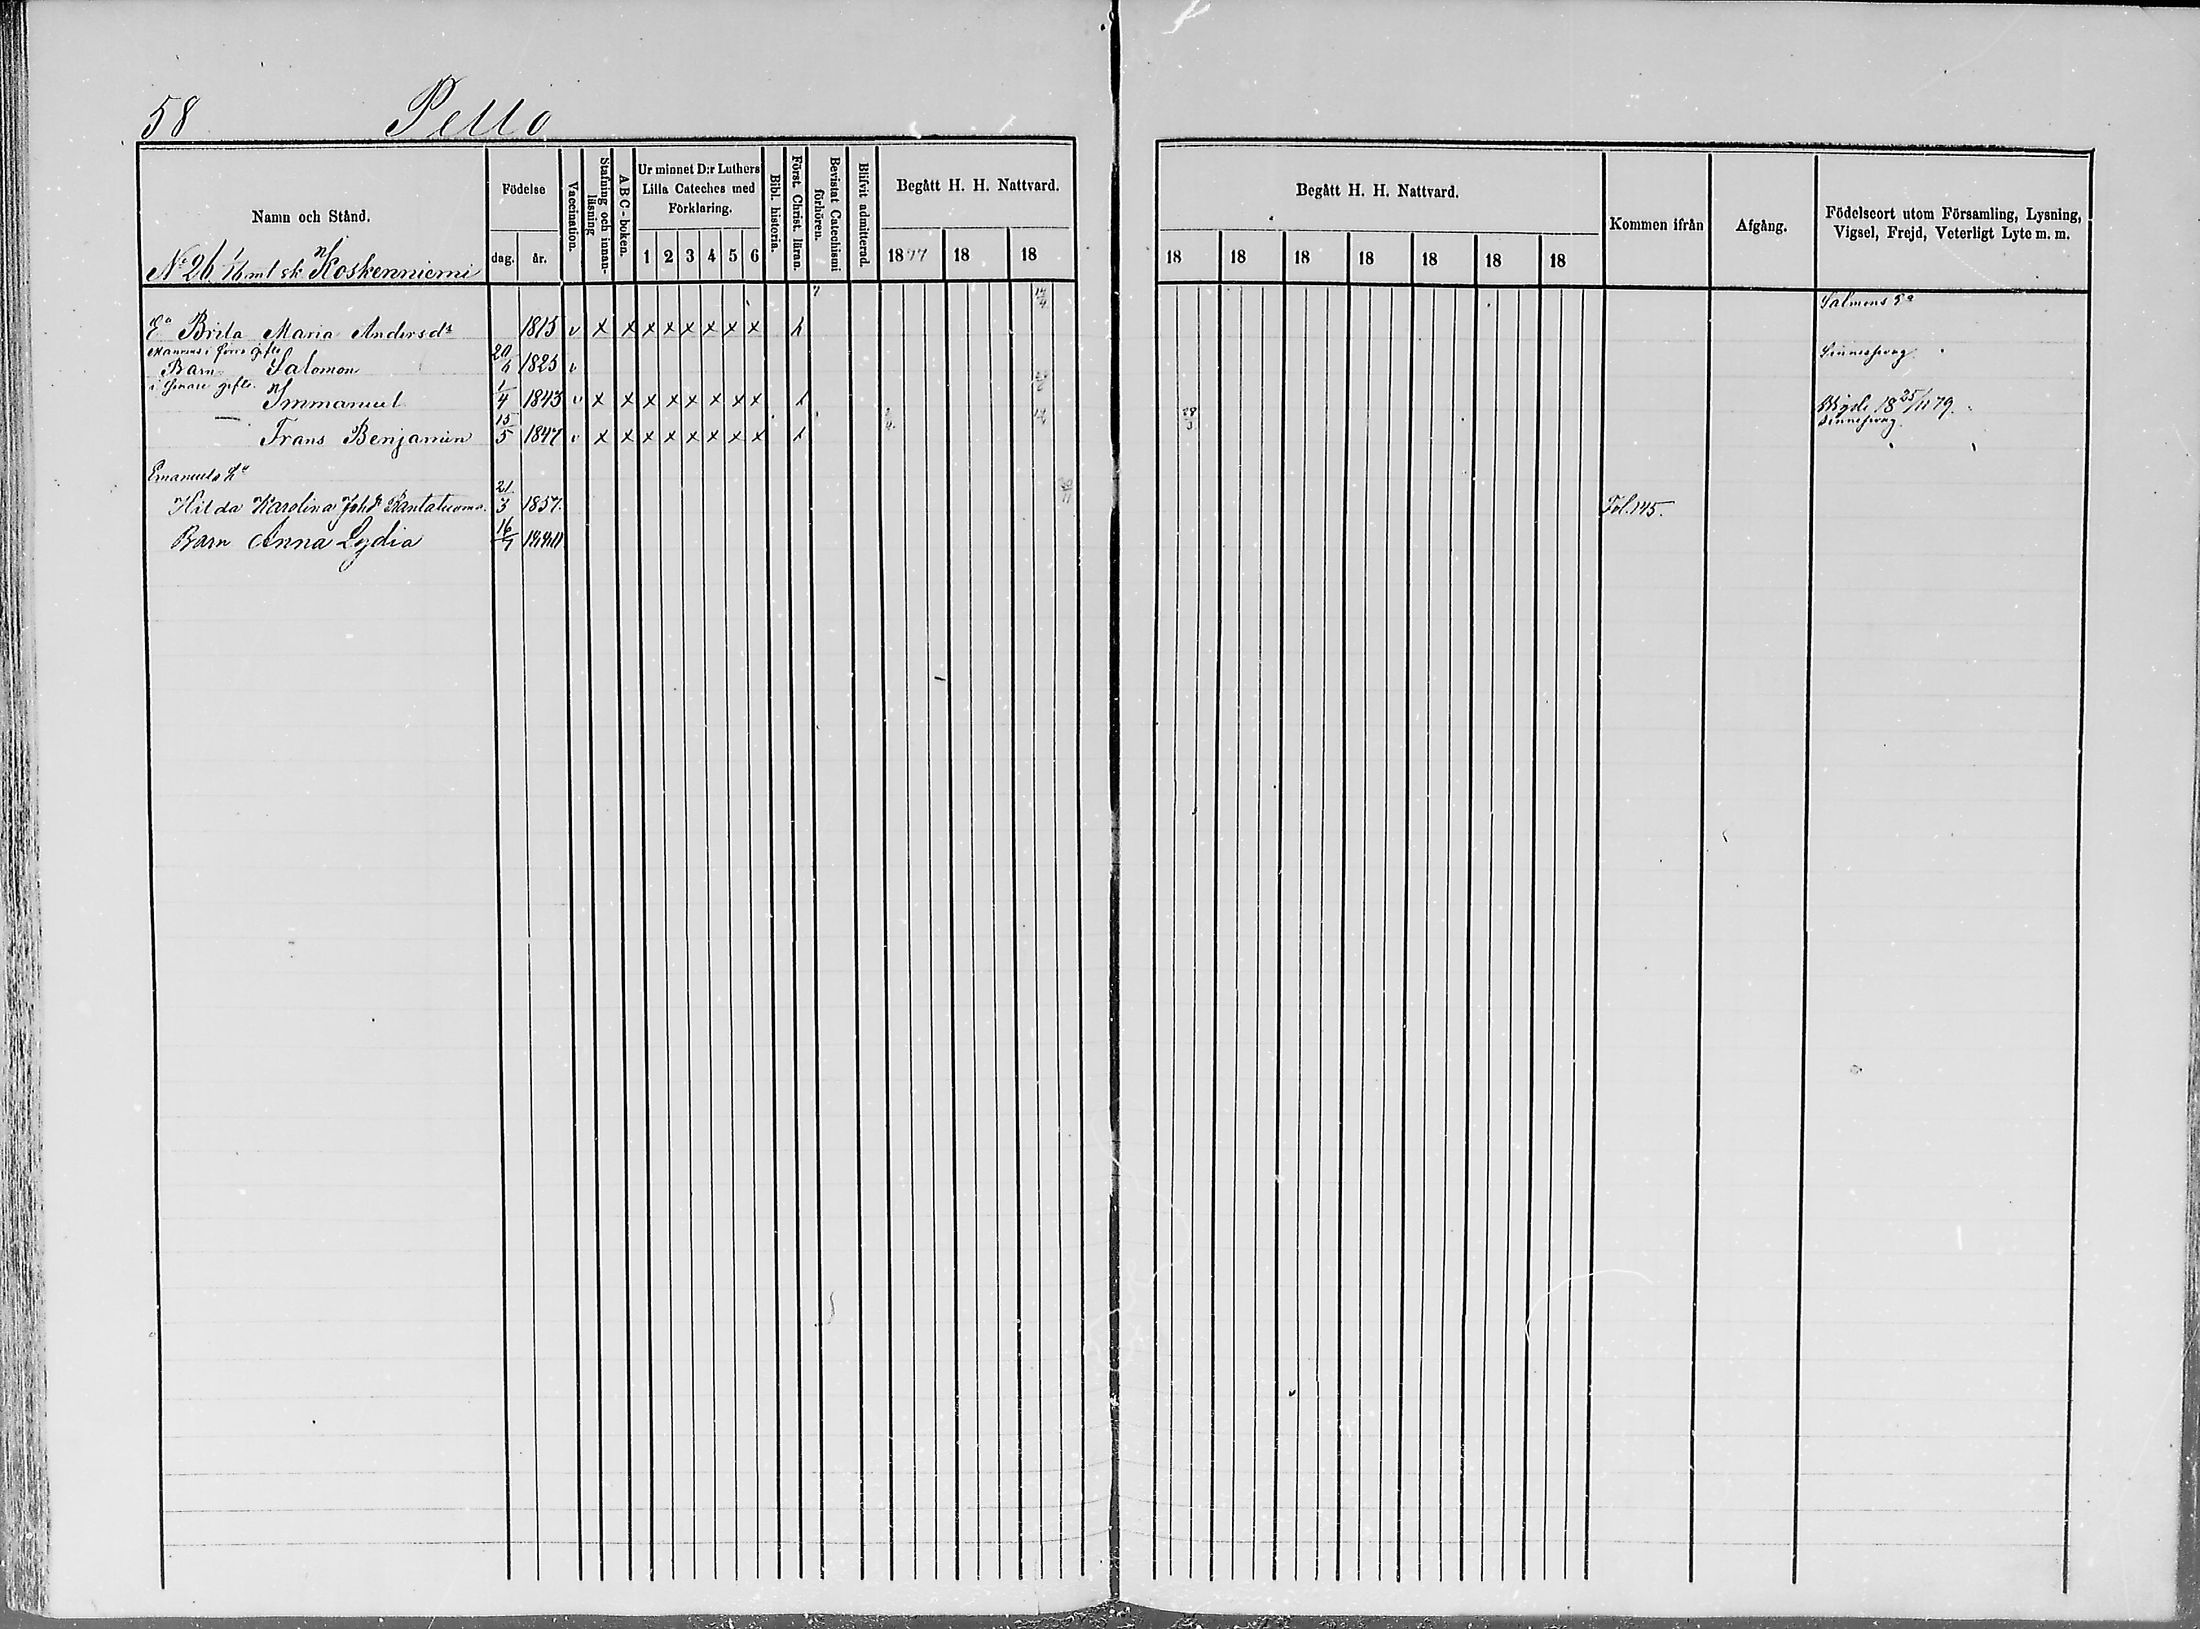 58 Pello
Namn och Stånd.
Födelse
dag. år.
Vaccination.
Stafning och innanläsning
A B C - boken.
Ur minnet D:r Luthers Lilla Cateches med Förklaring.
1 2 3 4 5 6
Bibl. historia.
Först. Christ. läran.
Bevistat Catechismi förhören.
Blifvit admitterad.
Begått H. H. Nattvard.
1877 18 18
Begått H. H. Nattvard.
18 18 18 18 18 18 18
Kommen ifrån
Afgång.
Födelseort utom Församling, Lysning, Vigsel, Frejd, Veterligt Lyte m. m.
No 26 mtl sk Koskenniemi
Ea Brita Maria Andersdr 1815 v x x x x x x x x
Mannens i förra gifte
Barn Salomon 20 1825 v Sinnessvag
i senare gifte
Immanuel 1/4 1843 v x x x x x x x x Vigde 18 25/11 79.
— Frans Benjamin 15/5 1847 v x x x x x x x x Sinnessvag
Emanuels Ha
Hilda Karolina Johsd Rantatuoma. 21/3 1857. Fol. 145.
Barn Anna Lydia 16